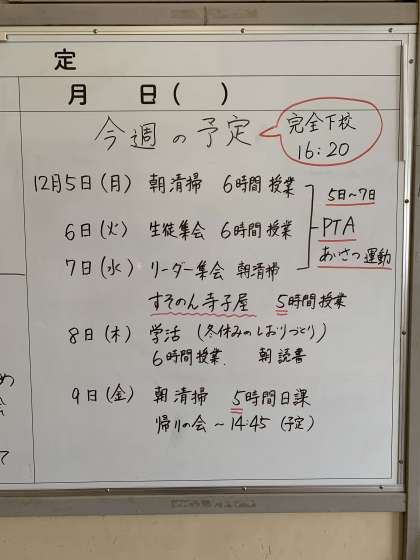 定
月 日( )
今週の予定
完全下校
16:20
12月5日(月) 朝清掃 6時間授業
5日~7日
6日(火) 生徒集会 6時間授業
PTA
あいさつ運動
7日(水) リーダー集会 朝清掃
すそのん寺子屋 5時間授業
8日(木) 学活 (冬休みのしおりづくり)
6時間授業 朝読書
9日(金) 朝清掃 5時間日課
帰りの会~14:45 (予定)
め
て